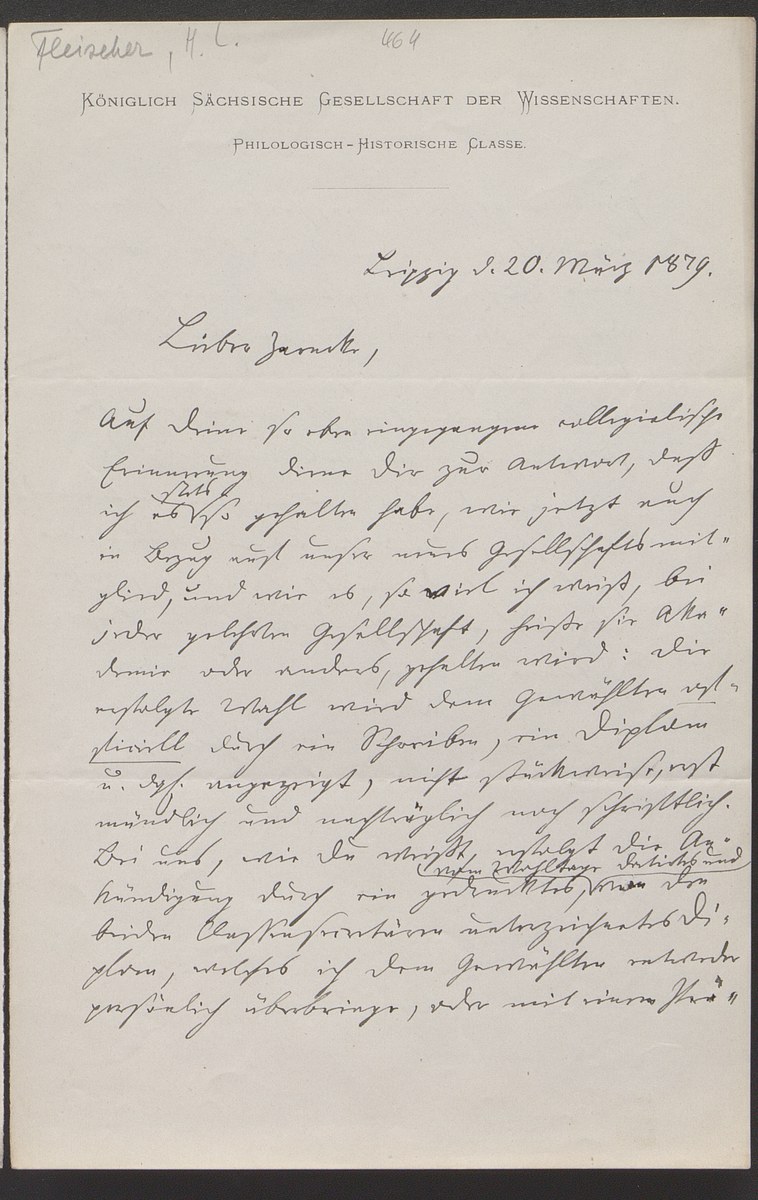 Fleischer, H. L.
464
Königlich Sächsische Gesellschaft der Wissenschaften.
Philologisch-Historische Classe.
Leipzig d. 20. März 1879.
Lieber Zarncke,
Auf Deine so eben eingegangene collegialische
Erinnerung diene Dir zur Antwort, daß
stets
ich es so gehalten habe, wie jetzt auch
in Bezug auf unser neues Gesellschaftsmit-
glied, und wie es, so viel ich weiß, bei
jeder gelehrten Gesellschaft, heiße sie Aka-
demie oder anders, gehalten wird: die
erfolgte Wahl wird dem Gewählten of-
ficiell durch ein Schreiben, ein Diplom
u. dgl. angezeigt, nicht stückweise, erst
mündlich und nachträglich noch schriftlich.
Bei uns, wie Du weißt, erfolgt die An-
vom Wahltage datirtes und
kündigung durch ein gedrucktes, von den
beiden Classensecretären unterzeichnetes Di-
plom, welches ich dem Gewählten entweder
persönlich überbringe, oder mit einem Prä-